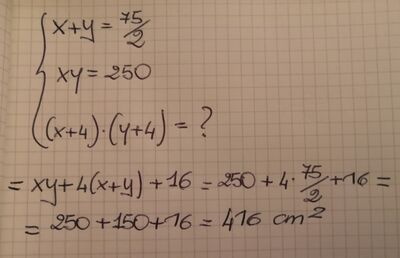 x+y = 75/2
xy = 250
(x+4)·(y+4) = ?
= xy+4(x+y)+16 = 250+4·75/2+16 =
= 250+150+16 = 416 cm²